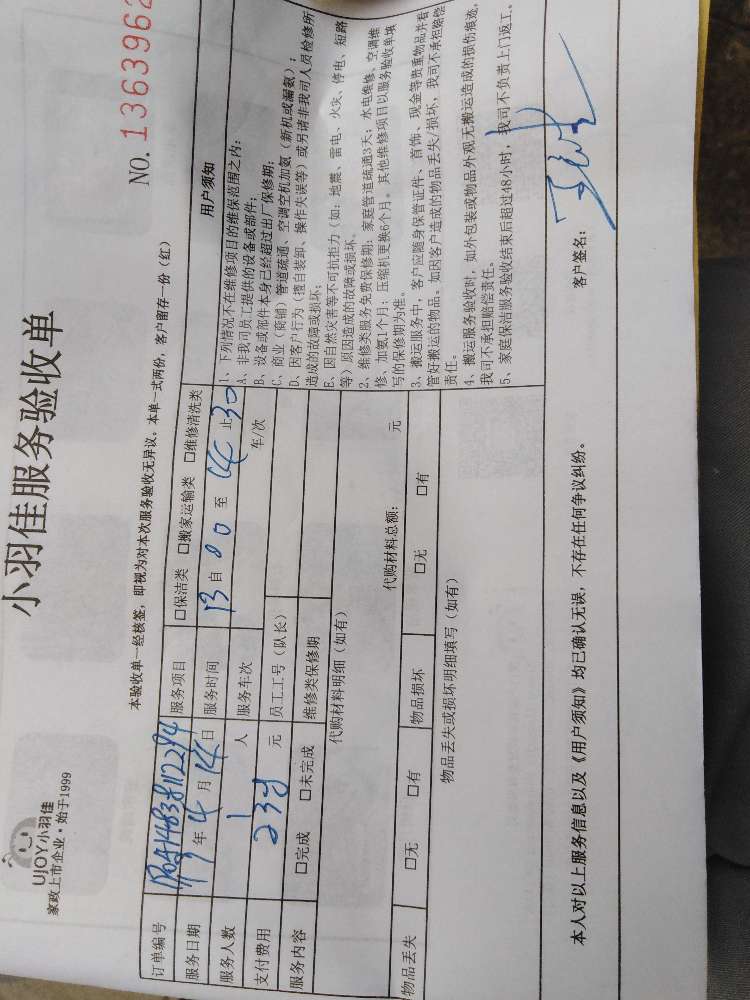 UJOY小羽佳
家政上市企业·始于1999
小羽佳服务验收单
NO. 1363962
本验收单一经核签，即视为对本次服务验收无异议。本单一式两份，客户留存一份（红）
订单编号
服务项目 □保洁类 □搬家运输类 □维修清洗类
服务日期 19年4月14日 服务时间 13自00至14止30
服务人数 1人 服务车次 车/次
支付费用 元 员工工号（队长）
服务内容 □完成 □未完成 维修类保修期
代购材料明细（如有）
代购材料总额： 元
物品丢失 □无 □有 物品损坏 □无 □有
物品丢失或损坏明细填写（如有）
用户须知
1、下列情况不在维修项目的维保范围之内：
A、非我司员工提供的设备或部件；
B、设备或部件本身已经超过出厂保修期；
C、商业（商铺）管道疏通、空调空机加氨（新机或漏氨）；
D、因客户行为（擅自装卸、操作失误等）或另请非我司人员检修所
造成的故障或损坏；
E、因自然灾害等不可抗拒力（如：地震、雷电、火灾、停电、短路
等）原因造成的故障或损坏。
2、维修类服务免费保修期：家庭管道疏通3天；水电维修、空调维
修、加氨1个月；压缩机更换6个月。其他维修项目以服务验收单填
写的保修期为准。
3、搬运服务中，客户应随身保管证件、首饰、现金等贵重物品并看
管好搬运的物品。如因客户造成的物品丢失/损坏，我司不承担赔偿
责任。
4、搬运服务验收时，如外包装或物品外观无搬运造成的损伤痕迹，
我司不承担赔偿责任。
5、家庭保洁服务验收结束后超过48小时，我司不负责上门返工。
本人对以上服务信息以及《用户须知》均已确认无误，不存在任何争议纠纷。
客户签名：